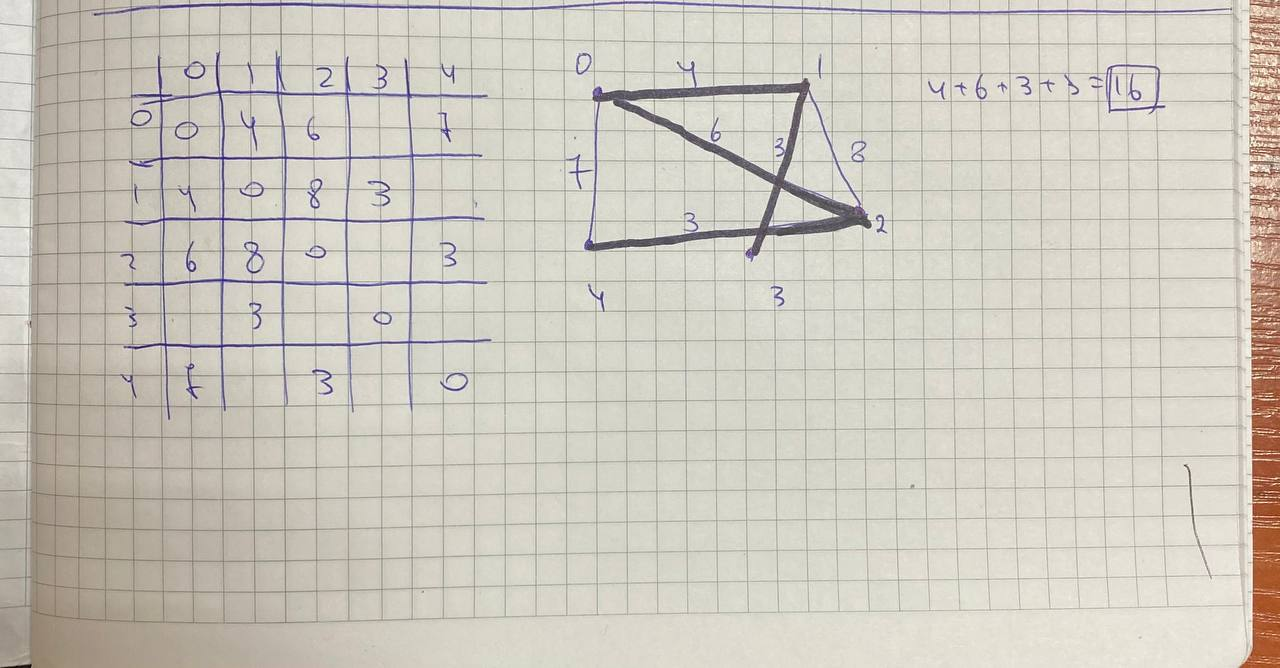 0 1 2 3 4
0 0 4 6 7
1 4 0 8 3
2 6 8 0 3
3 3 0
4 7 3 0
0 4 1
7 6 3 8
3 2
4 3
4+6+3+3=16